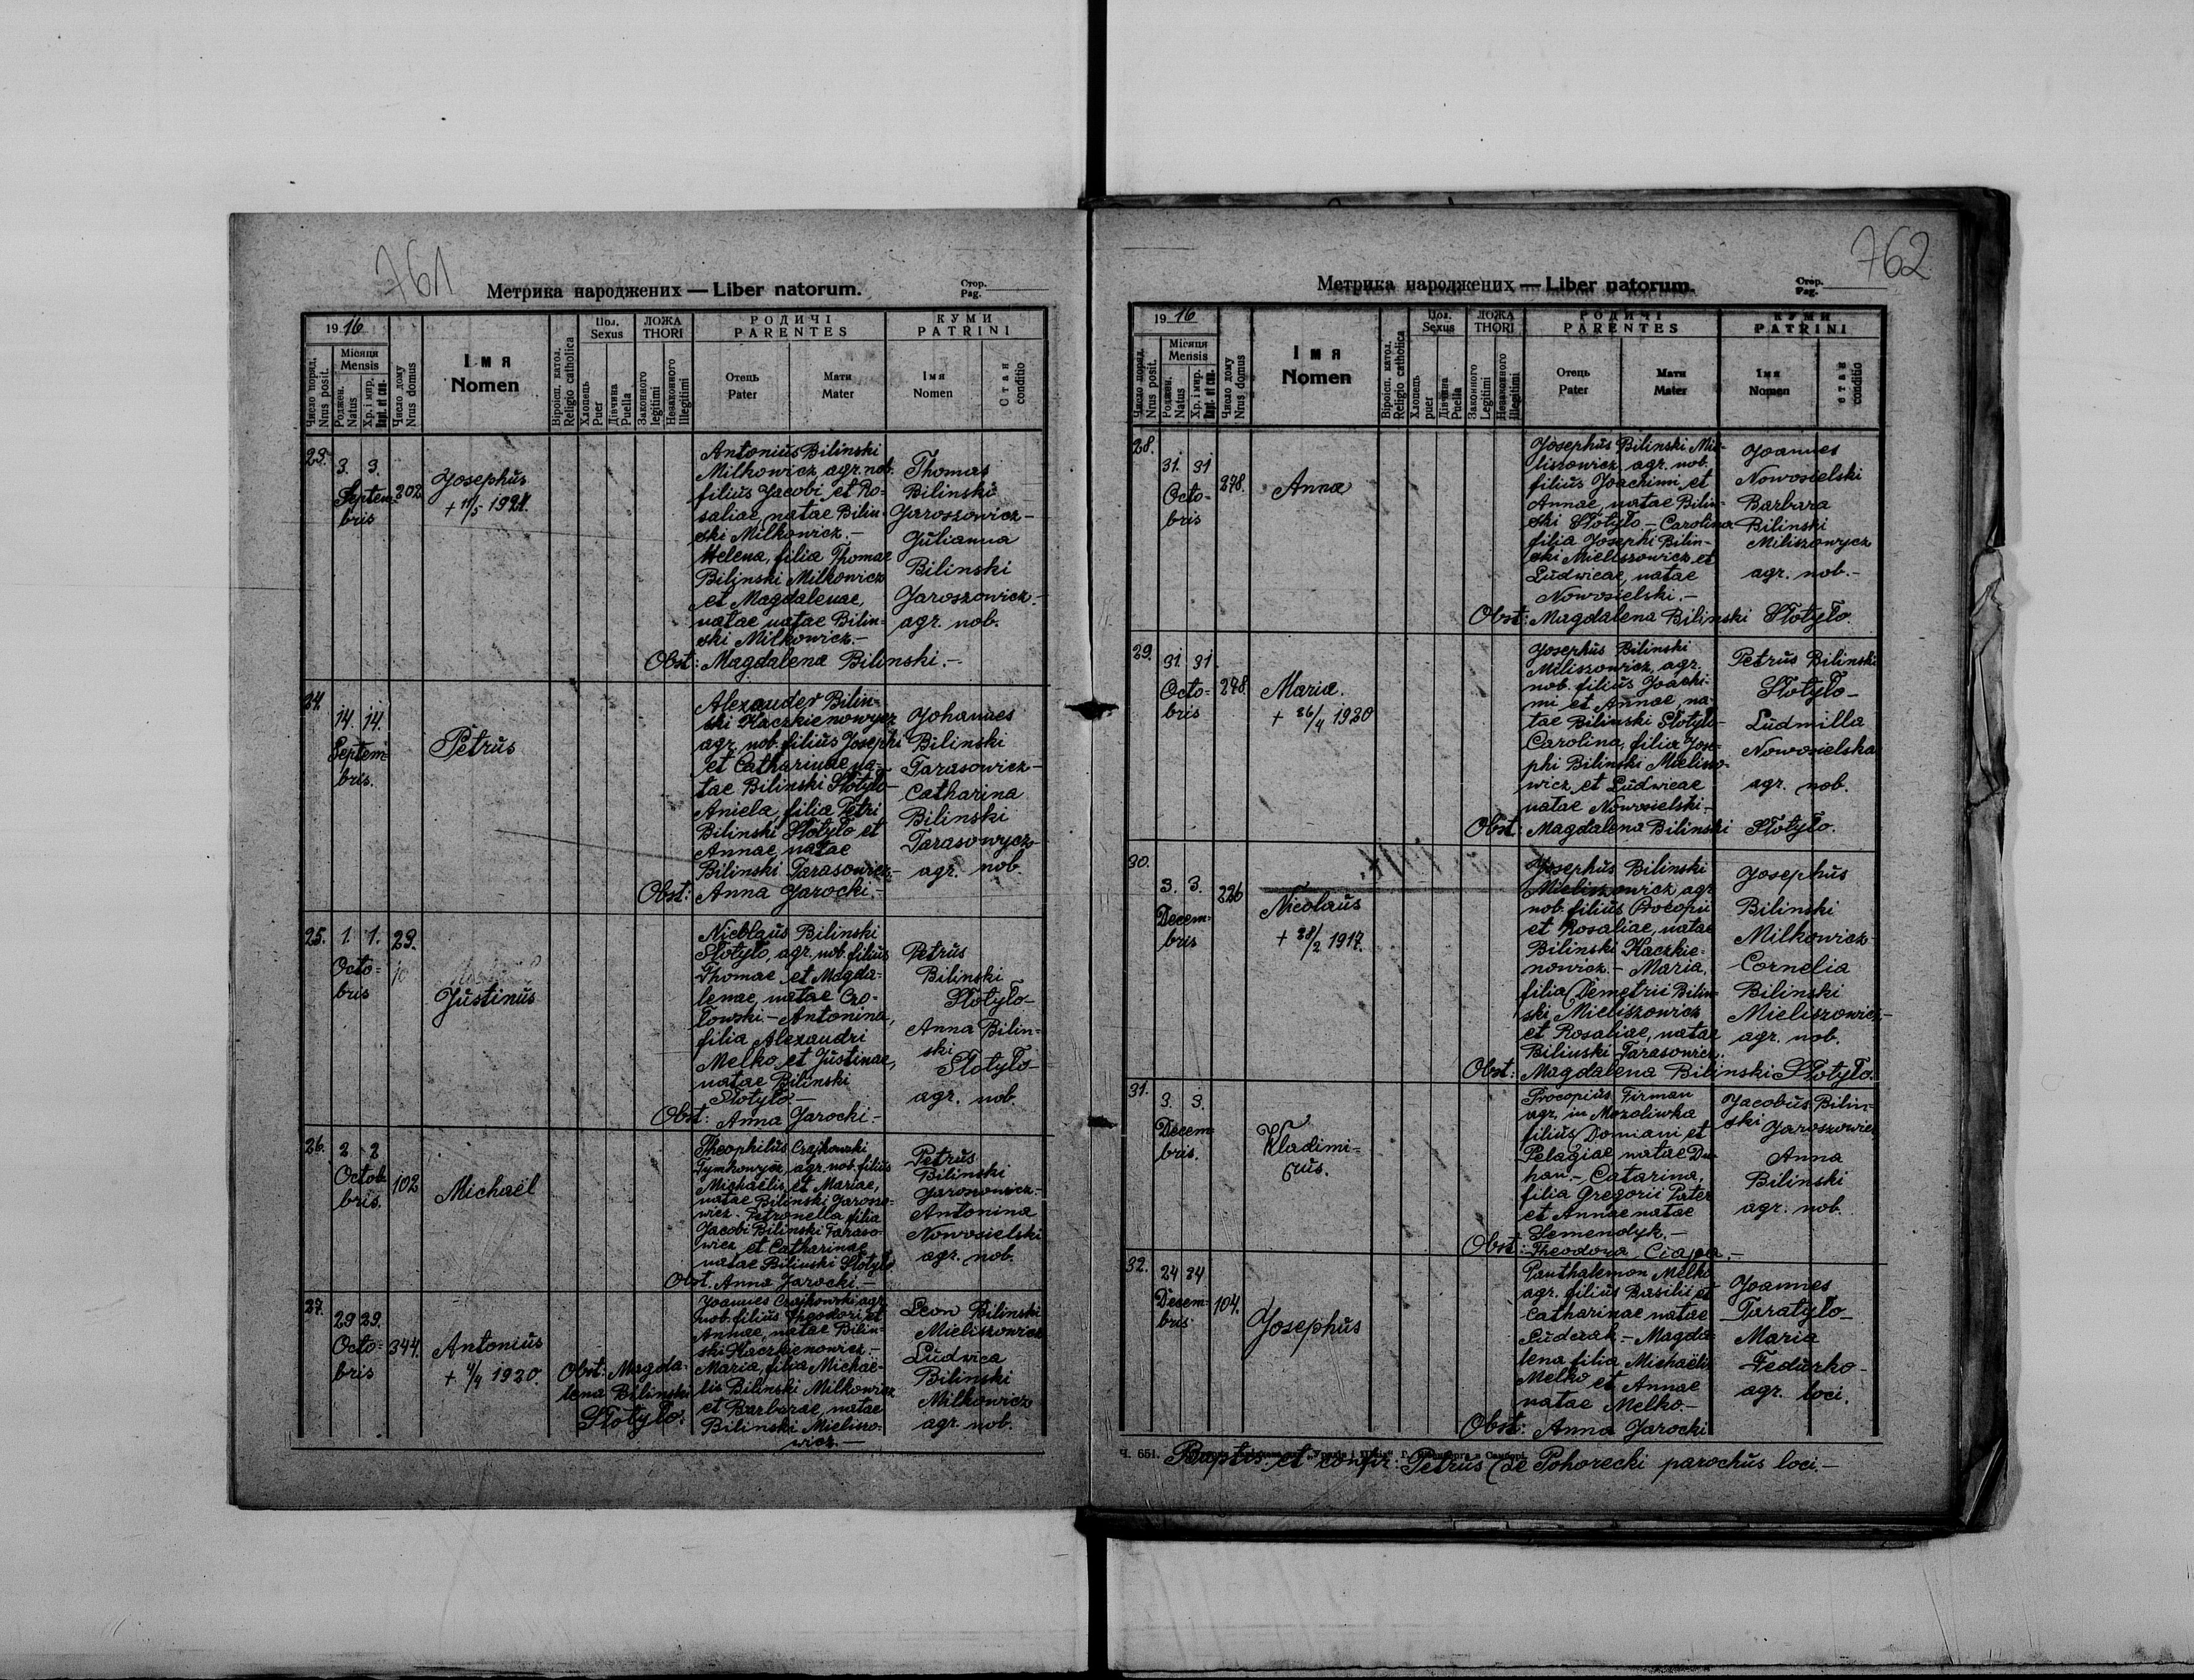 761
Метрика народжених — Liber natorum.
Стор.
Pag.
1916
Число поряд.
Nrus posit.
Місяця
Mensis
Роджен.
Natus
Хр. і мир.
Bapt. et cn.
Число дому
Nrus domus
Імя
Nomen
Віроісп. катол.
Religio catholica
Пол.
Sexus
Хлопець
Puer
Дівчина
Puella
ЛОЖА
THORI
Законного
legitimi
Незаконного
Illegitimi
РОДИЧІ
PARENTES
Отець
Pater
Мати
Mater
КУМИ
PATRINI
Імя
Nomen
Стан
conditio
23.
3. 3.
Septem-
bris
202
Josephus
+ 11/5 1921.
Antonius Bilinski
Milkowicz agr. nob.
filius Jacobi et Ro-
saliae, natae Bilin-
ski Milkowicz.-
Helena, filia Thomae
Bilinski Milkowicz
et Magdalenae,
natae natae Bilin-
ski Milkowicz.-
Thomas
Bilinski
Jaroszowicz-
Julianna
Bilinski
Jaroszowicz-
agr. nob.
Obst: Magdalena Bilinski.-
24.
14. 14.
Septem-
bris.
Petrus
Alexander Bilin-
ski Kaczkienowycz
agr. nob. filius Josephi
et Catharinae na-
tae Bilinski Słotyło-
Aniela, filia Petri
Bilinski Słotyło et
Annae, natae
Bilinski Tarasowicz.-
Johannes
Bilinski
Tarasowicz-
Catharina
Bilinski
Tarasowycz-
agr. nob.
Obst: Anna Jarocki.-
25.
1. 1.
Octo-
bris
23.
Justinus
Nicolaus Bilinski
Słotyło, agr. nob. filius
Thomae et Magda-
lenae, natae Czo-
łowski.- Antonina,
filia Alexandri
Melko, et Justinae,
natae Bilinski
Słotyło.-
Petrus
Bilinski
Słotyło-
Anna Bilin-
ski
Słotyło-
agr. nob.
Obst: Anna Jarocki.-
26.
2 2
Octob-
bris.
102
Michael
Theophilus Czajkowski
Tymkowycz, agr. nob. filius
Michaelis et Mariae,
natae Bilinski Jaroszo-
wicz. Petronella filia
Jacobi Bilinski Taraso-
wicz et Catharinae
natae Bilinski Słotyło
Petrus
Bilinski
Jaroszowicz-
Antonina
Nowosielski
agr. nob.
Obst. Anna Jarocki.-
27.
29 29.
Octo-
bris
344.
Antonius
+ 4/4 1920.
Obst: Magda-
lena Bilinski
Słotyło.
Joannes Czajkowski agr.
nob. filius Theodori et
Annae, natae Bilin-
ski Kaczkienowicz.-
Maria, filia Michae-
lis Bilinski Milkowicz
et Barbarae, natae
Bilinski Mieliszo-
wicz.-
Leon Bilinski
Mieliszowicz
Ludwica
Bilinski
Milkowicz
agr. nob.
762
Метрика народжених — Liber natorum.
Стор.
Pag.
1916
Число поряд.
Nrus posit.
Місяця
Mensis
Роджен.
Natus
Хр. і мир.
Bapt. et cn.
Число дому
Nrus domus
Імя
Nomen
Віроісп. катол.
Religio catholica
Пол.
Sexus
Хлопець
puer
Дівчина
Puella
ЛОЖА
THORI
Законного
Legitimi
Незаконного
Illegitimi
РОДИЧІ
PARENTES
Отець
Pater
Мати
Mater
КУМИ
PATRINI
Імя
Nomen
Стан
conditio
28.
31. 31
Octo-
bris
278.
Anna
Josephus Bilinski Mie-
liszowicz agr. nob.
filius Joachimi et
Annae, natae Bilin-
ski Słotyło.- Carolina
filia Josephi Bilin-
ski Mieliszowicz et
Ludwicae, natae
Nowosielski.-
Joannes
Nowosielski
Barbara
Bilinski
Miliszowycz
agr. nob.-
Obst: Magdalena Bilinski Słotyło.
29.
31. 31
Octo-
bris
278.
Maria.
+ 26/4 1920
Josephus Bilinski
Miliszowicz, agr.
nob. filius Joachi-
mi et Annae, na-
tae Bilinski Słotyło-
Carolina, filia Jose-
phi Bilinski Mieliszo-
wicz, et Ludwicae
natae Nowosielski-
Petrus Bilinski
Słotyło-
Ludmilla
Nowosielska
agr. nob.
Obst: Magdalena Bilinski Słotyło.
30.
3. 3.
Decem-
bris
226
Nicolaus
+ 28/2 1917.
Josephus Bilinski
Mieliszowicz agr
nob. filius Procopii
et Rosaliae, natae
Bilinski Kaczkie-
nowicz.- Maria,
filia Demetrii Bilin-
ski Mieliszowicz
et Rosaliae, natae
Bilinski Tarasowicz.
Josephus
Bilinski
Milkowicz-
Cornelia
Bilinski
Mieliszowicz-
agr. nob.
Obst: Magdalena Bilinski Słotyło.
31.
3. 3.
Decem-
bris.
Wladimi-
rus.
Procopius Firman
agr. in Mozoliwka
filius Domiani et
Pelagiae natae Du-
han.- Catarina,
filia Gregorii Pater
et Annae natae
Semenolyk.-
Jacobus Bilin-
ski Jaroszowicz
Anna
Bilinski
agr. nob.
Obst: Theodora Ciapa.-
32.
24 24
Decem-
bris
104.
Josephus
Panthalemon Melko
agr. filius Basilii et
Catharinae natae
Luderak.- Magda-
lena filia Michaëlis
Melko et Annae
natae Melko.-
Joannes
Taratyło-
Maria
Fedurko-
agr. loci.
Obst: Anna Jarocki
Ч. 651.
Baptis. et confir: Petrus de Pohorecki parochus loci.-